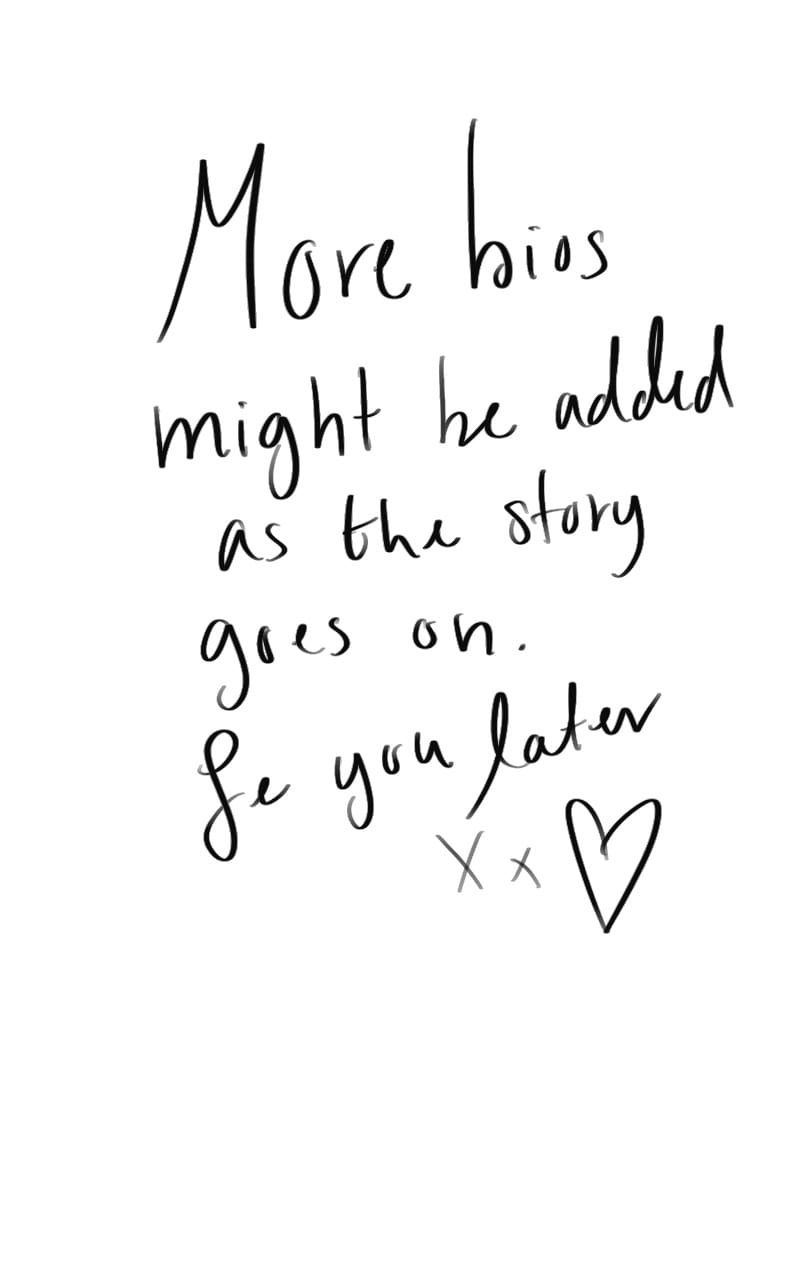 More bios
might be added
as the story
goes on.
Se you later
Xx ♡